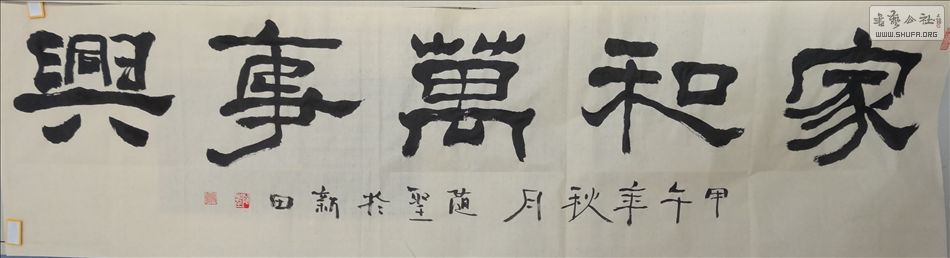 家和萬事興
甲午年秋月蘊聖於新田
书艺公社
WWW.SHUFA.ORG